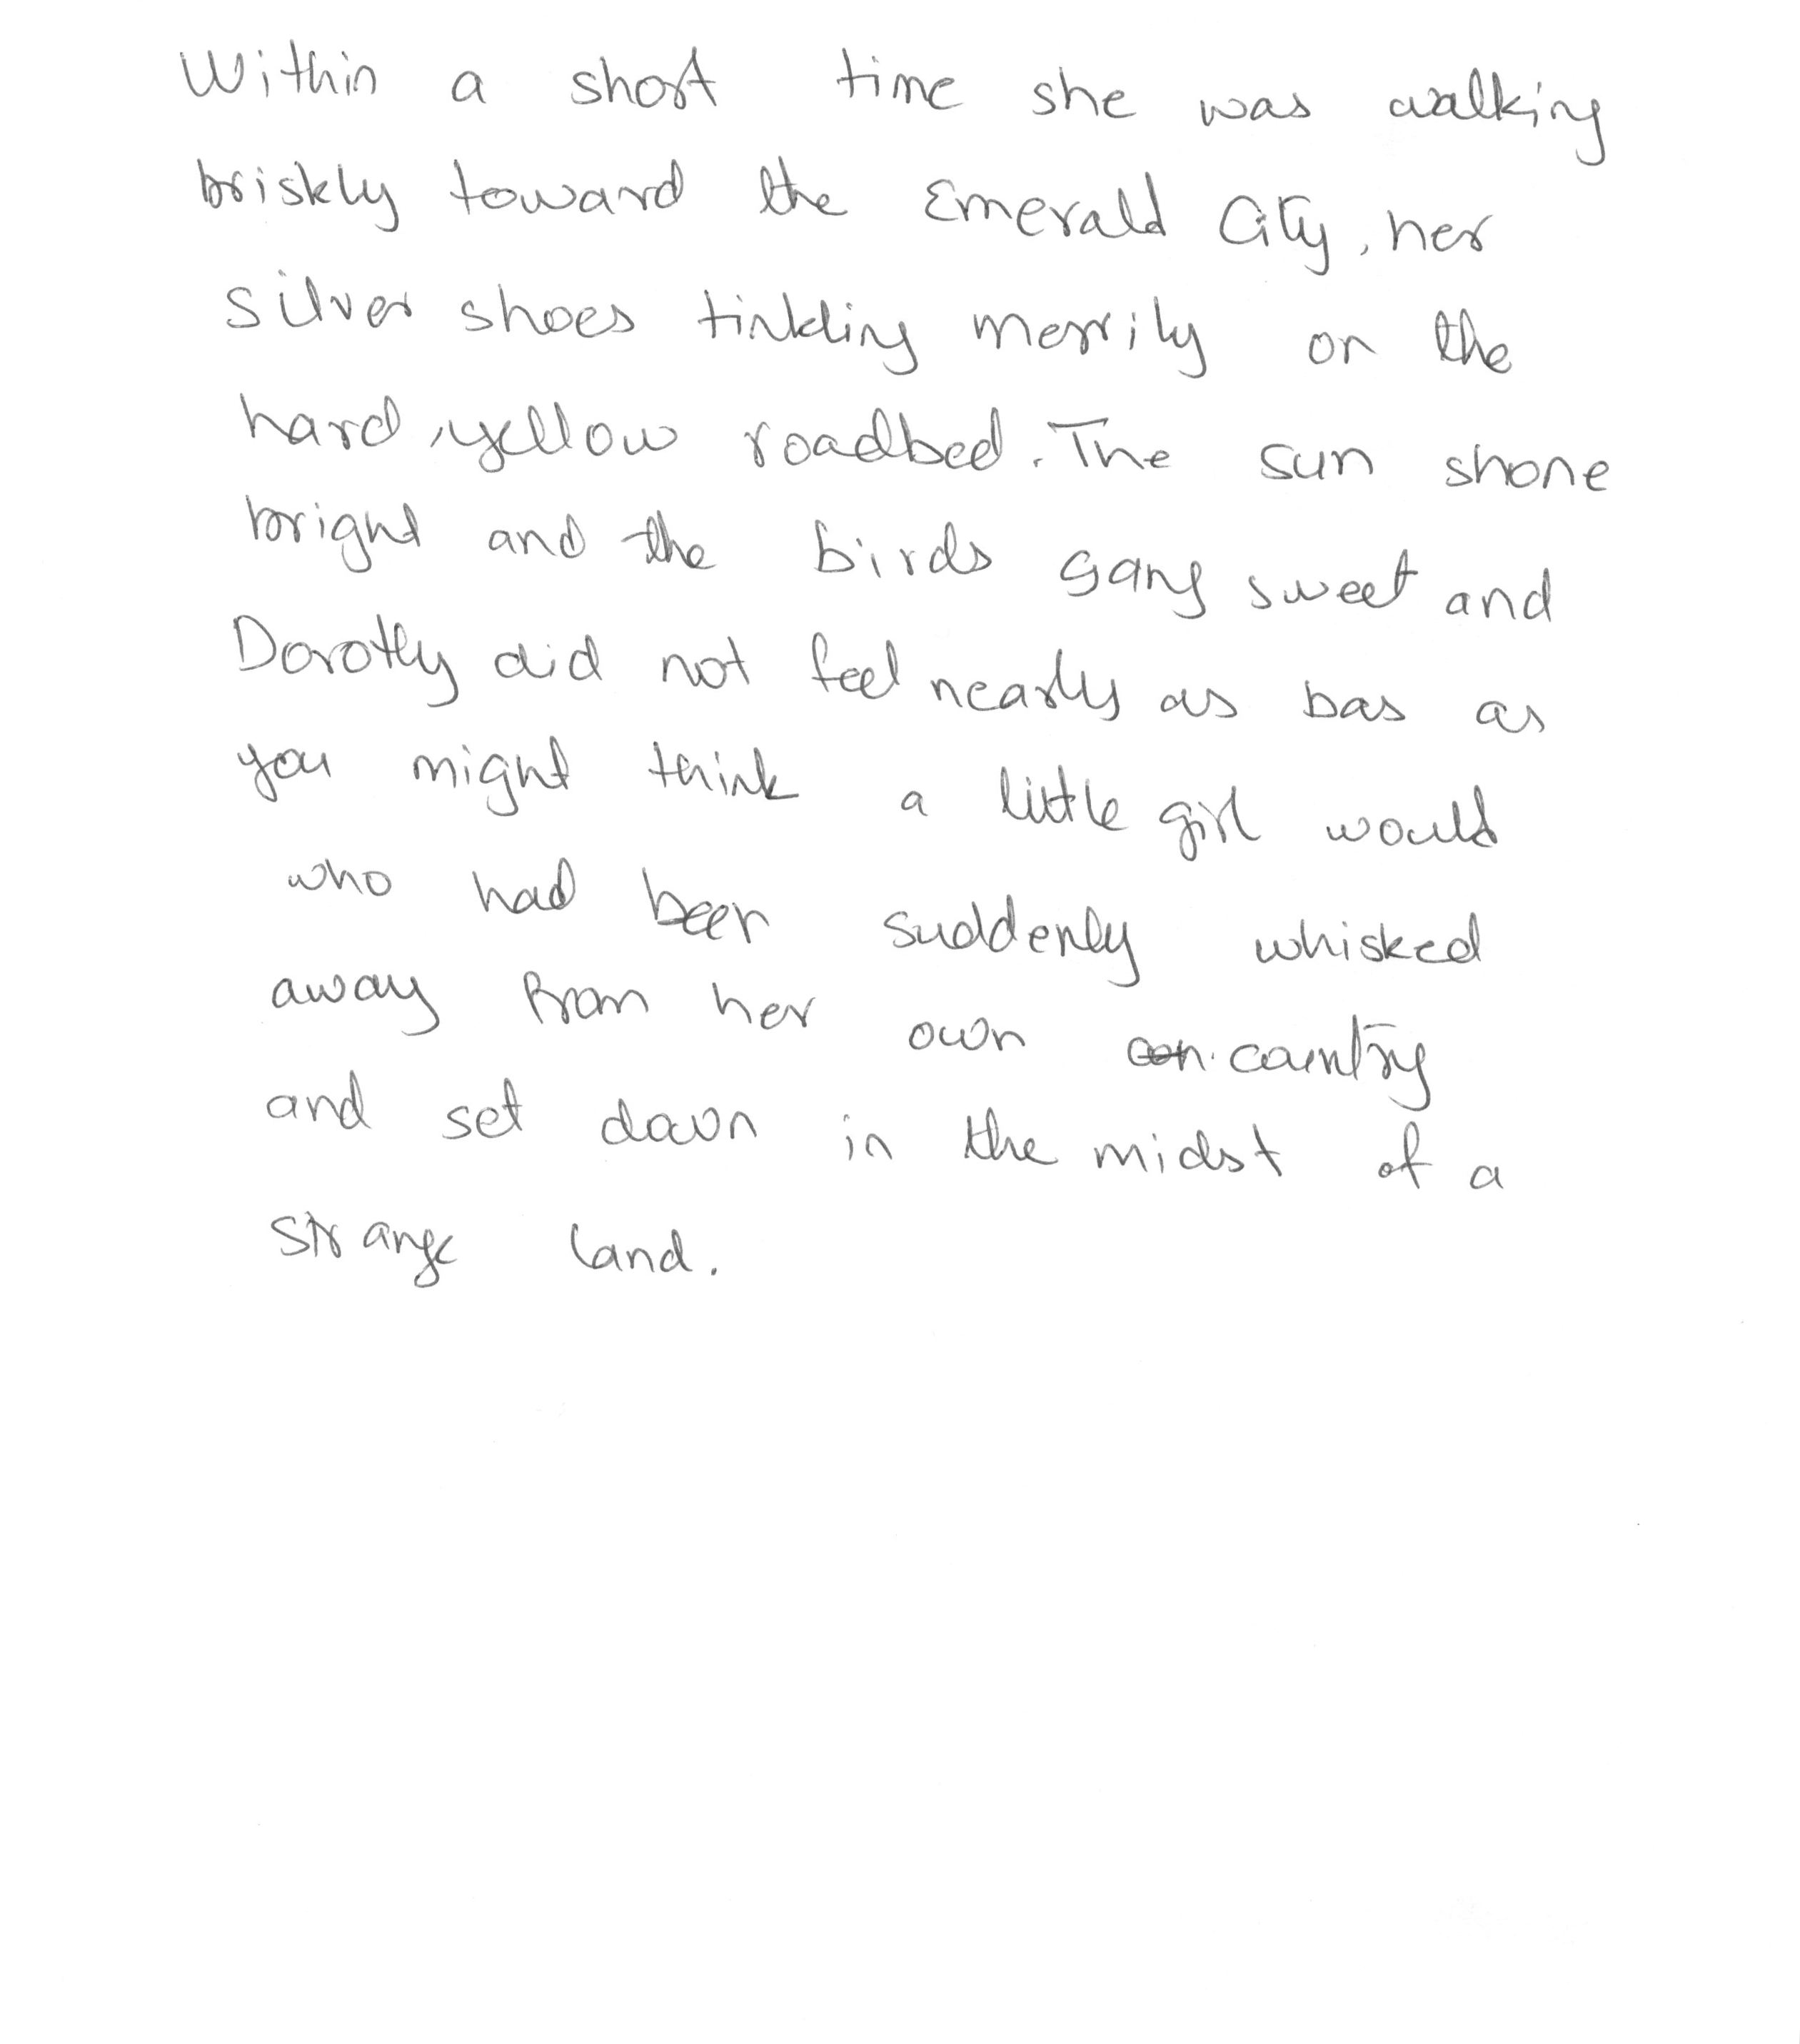 Within a short time she was walking
briskly toward the Emerald City, her
silver shoes tinkling merrily on the
hard, yellow roadbed. The sun shone
bright and the birds sang sweet and
Dorothy did not feel nearly as bas as
you might think a little girl would
who had been suddenly whisked
away from her own con country
and set down in the midst of a
strange land.